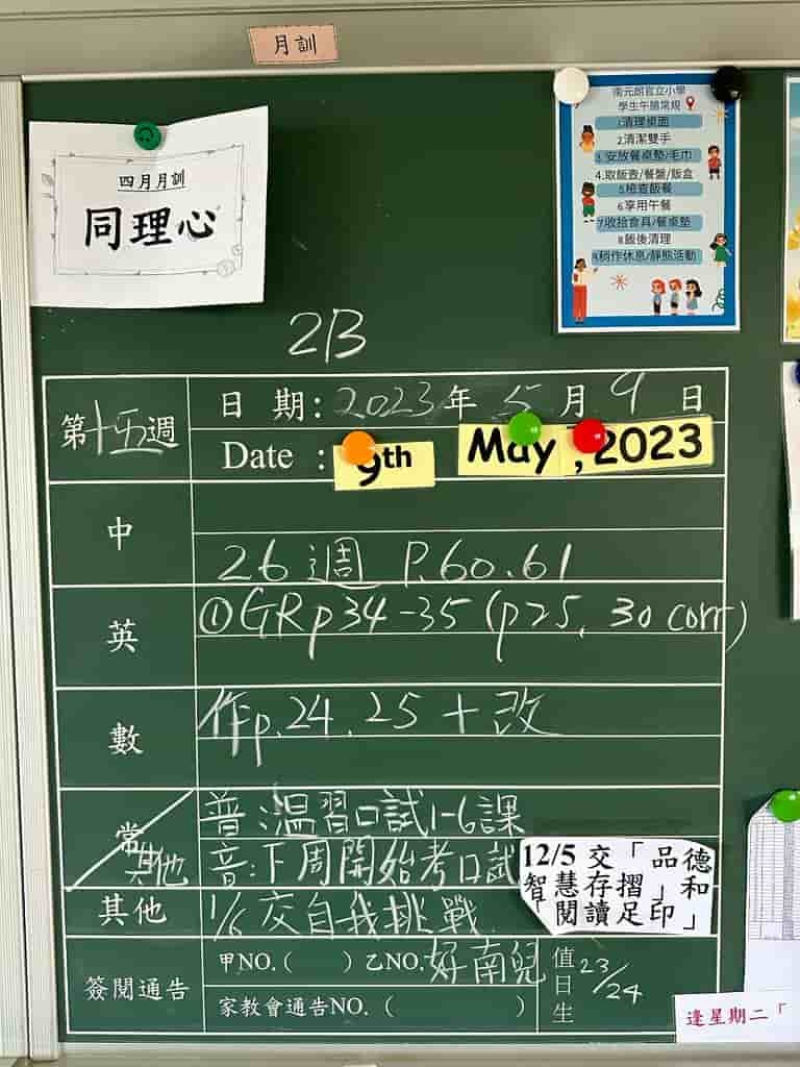 月訓
四月月訓
同理心
南元朗官立小學
學生午膳常規
1.清理桌面
2.清潔雙手
3.安放餐桌墊/毛巾
4.取飯壺/餐盤/飯盒
5.檢查飯餐
6.享用午餐
7.收拾食具/餐桌墊
8.飯後清理
9.稍作休息/靜態活動
2B
第十五週
日 期: 2023年 5月 9日
Date : 9th May, 2023
中
26週 P.60.61
英
①GRp34-35 (p25, 30 corr)
數
作p.24.25+改
常 其他
普:溫習口試1-6課
音:下周開始考口試
其他
1/6 交自我挑戰
12/5 交「品德
智慧存摺」和
「閱讀足印」
簽閱通告
甲NO.( ) 乙NO.好南兒
家教會通告NO.( )
值日生
23/24
逢星期二「